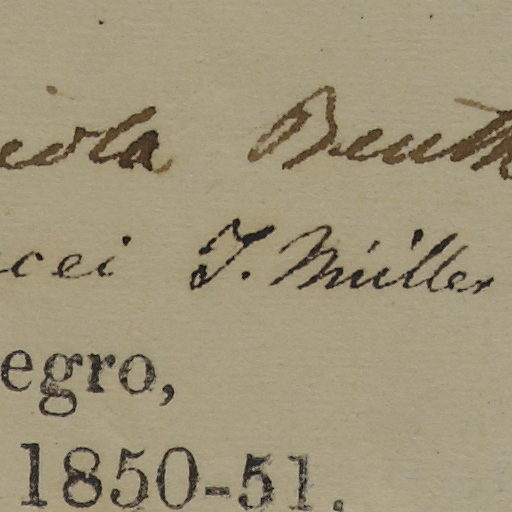 icola Benth
cei J. Müller
egro,
1850-51.